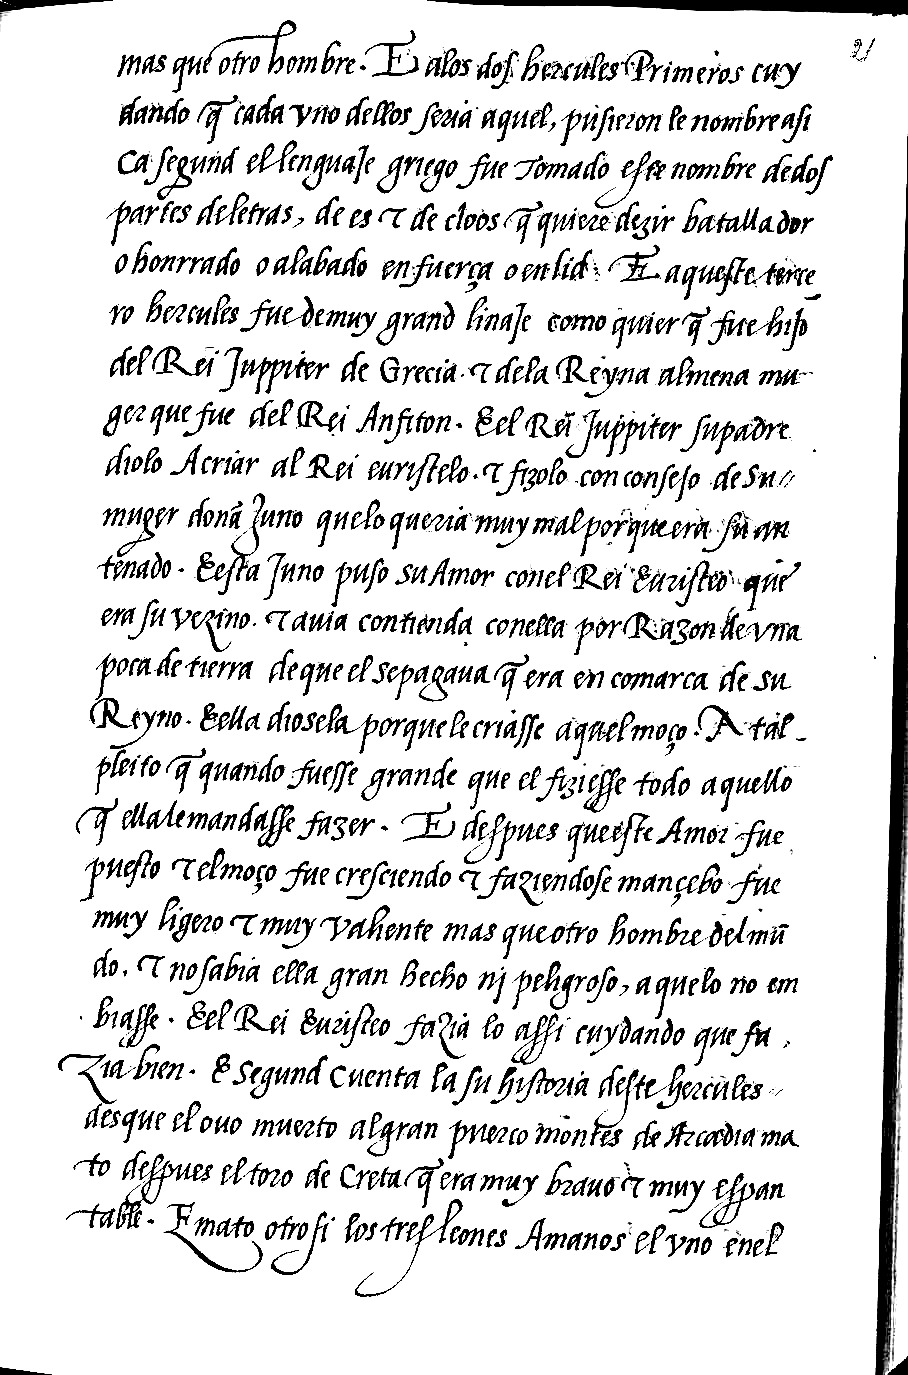 21
mas que otro hombre. E alos dos hercules Primeros cuy
dando q̃ cada vno dellos seria aquel, pusieron le nombre asi
Ca segund el lenguaJe griego fue Tomado este nombre de dos
partes de letras, de es & de cloos q̃ quiere dezir batallador
o honrrado o alabado en fuerça o en lid. E aqueste terce
ro hercules fue de muy grand linaJe como quier q̃ fue hiJo
del Rei Juppiter de Grecia. & dela Reyna almena mu
ger que fue del Rei Anfiton. E el Rei Juppiter su padre
diolo Acriar al Rei euristelo. & fizolo con conseJo de su
muger doña Juno que lo queria muy mal porque era su an
tenado. E esta Juno puso su Amor con el Rei Euristeo que
era su vezino. & auia contienda con ella por Razon de vna
poca de tierra de que el se pagaua q̃ era en comarca de su
Reyno. E ella diosela porque le criasse aquel moço. A tal
pleito q̃ quando fuesse grande que el fiziesse todo aquello
q̃ ella le mandasse fazer. E despues que este Amor fue
puesto & el moço fue cresciendo & faziendose mançebo fue
muy ligero & muy valiente mas que otro hombre del mũ
do. & no sabia ella gran hecho nj peligroso, a que lo no em
biasse. E el Rei Euristeo fazia lo assi cuydando que fa
zia bien. E segund cuenta la su historia deste hercules
desque el ouo muerto al gran puerco montes de Arcadia ma
to despues el toro de Creta q̃ era muy brauo & muy espan
table. E mato otro si los tres leones Amanos el vno enel